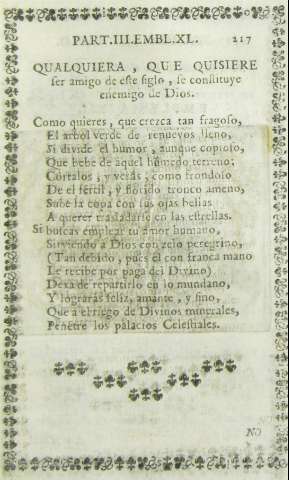 PART.III.EMBL.XL. 217
QUALQUIERA, QUE QUISIERE
ser amigo de este siglo, se constituye
enemigo de Dios.
Como quieres, que crezca tan fragoso,
El arbol verde de renuevos lleno,
Si divide el humor, aunque copioso,
Que bebe de aquel humedo terreno;
Córtalos, y verás, como frondoso
De el fertil, y florido tronco ameno,
Sube la copa con sus ojas bellas
A querer trasladarse en las estrellas.
Si buscas emplear tu amor humano,
Sirviendo à Dios con zelo peregrino,
(Tan debido, pues él con franca mano
Le recibe por paga del Divino)
Dexa de repartirlo en lo mundano,
Y lograràs feliz, amante, y fino,
Que a el riego de Divinos minerales,
Penetre los palacios Celestiales.
NO